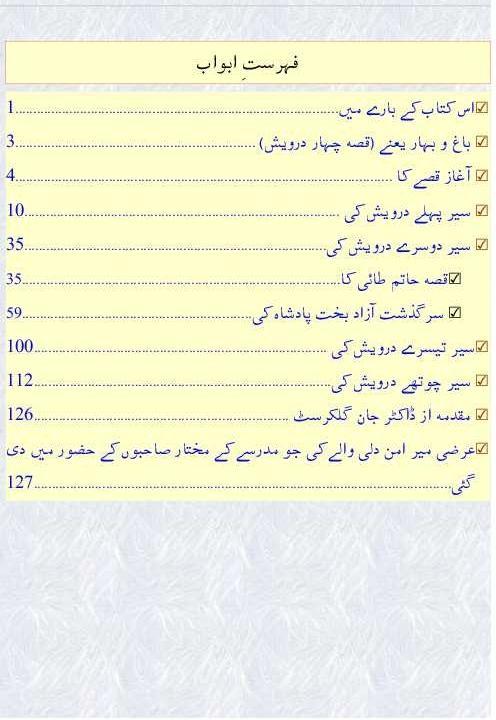 فہرستِ ابواب
☑اس کتاب کے بارے میں........................1
☑ باغ و بہار یعنے (قصہ چہار درویش) ........................3
☑ آغاز قصے کا ........................4
☑ سیر پہلے درویش کی ........................10
☑ سیر دوسرے درویش کی........................35
☑قصہ حاتم طائی کا........................35
☑ سرگذشت آزاد بخت پادشاہ کی........................59
☑سیر تیسرے درویش کی ........................100
☑ سیر چوتھے درویش کی........................112
☑ مقدمہ از ڈاکٹر جان گلکرسٹ ........................126
☑عرضی میر امن دلی والے کی جو مدرسے کے مختار صاحبوں کے حضور میں دی
گئی........................127